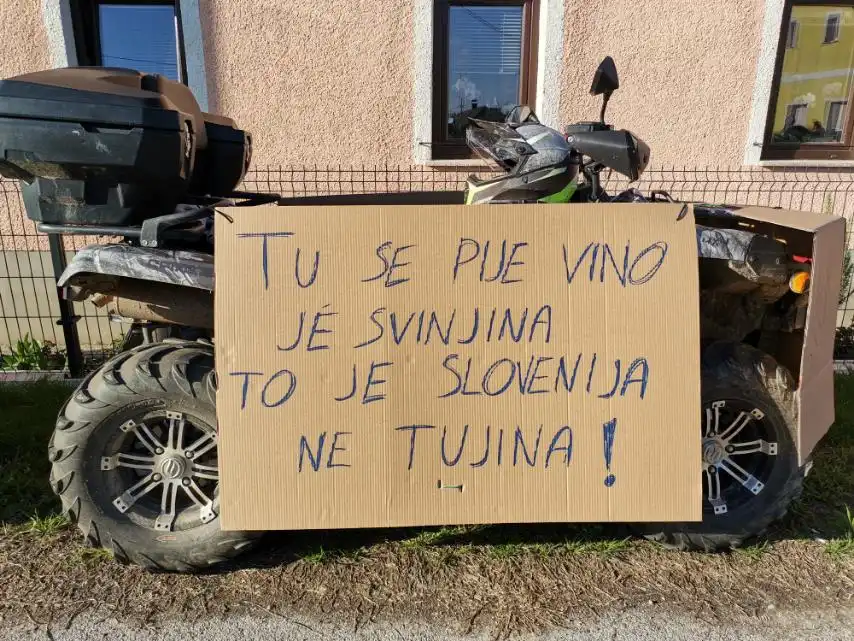 TU SE PIJE VINO
JÉ SVINJINA
TO JE SLOVENIJA
NE TUJINA!